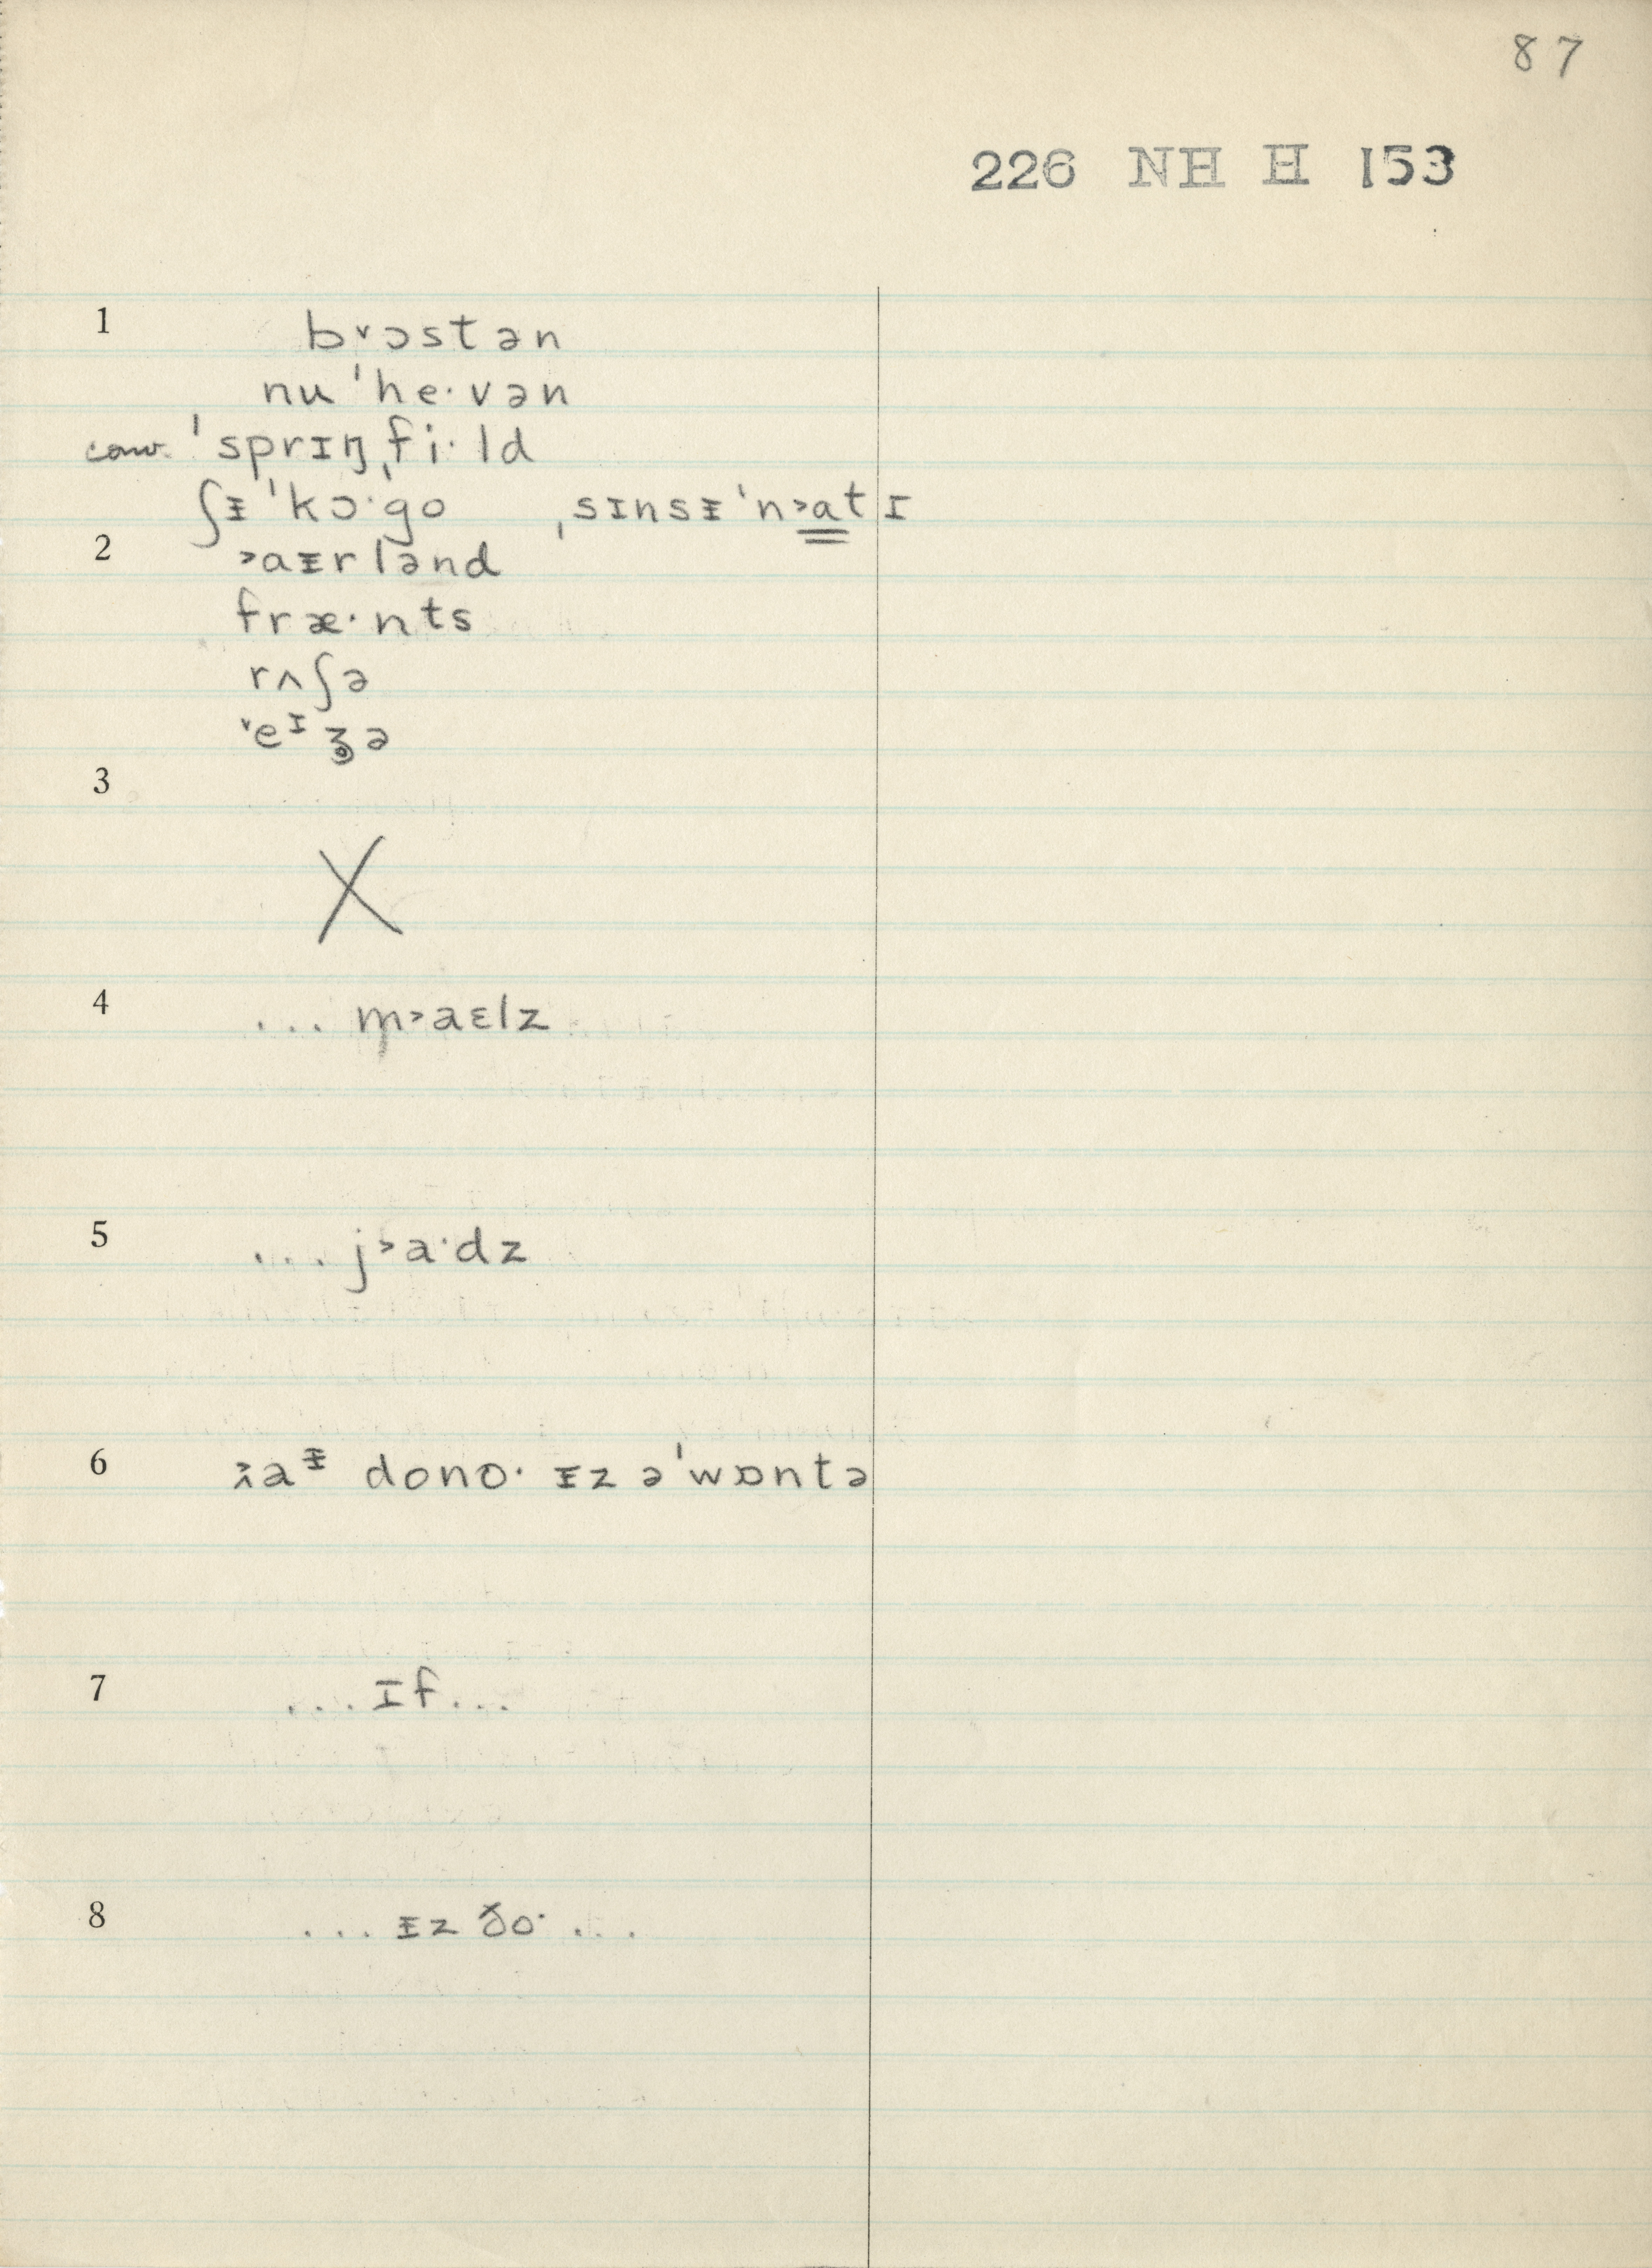 87
226 NH H 153
1 b˅ɔstən
nuˈhe·vən
conv. ˈsprɪŋˌfi·ld
ʃᵻˈkɔ·go ˌsɪnsᵻˈn˃atɪ
2 ˃aᵻrlənd
fræ·nts
rʌʃə
˅eᶦʒə
3
X
4 ... m˃aɛlz
5 ... j˃a·dz
6 a<sup>ᵻ</sup> dono· ᵻz əˈwɒntə
7 ...ɪf...
8 ... ᵻz ðo· ...